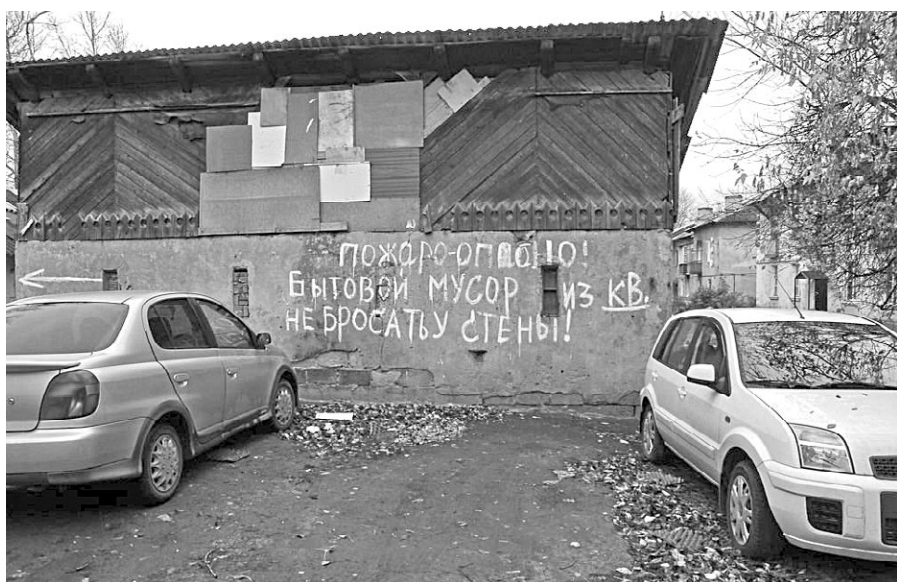 ПОЖАРО-ОПАСНО!
БЫТОВОЙ МУСОР ИЗ КВ.
НЕ БРОСАТЬ У СТЕНЫ!